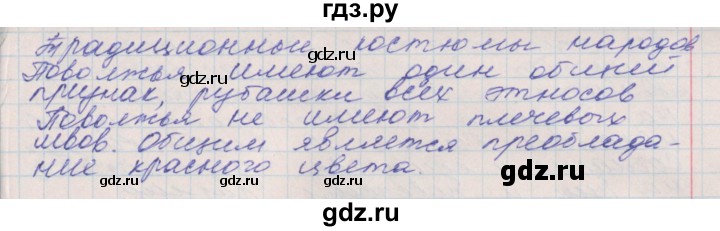 гдз.ру
Традиционные костюмы народов
Поволжья имеют один общий
признак, рубашки всех этносов
Поволжья не имеют плечевых
швов. Общим является преоблада-
ние красного цвета.
gdz.ru
gdz.ru
gdz.ru